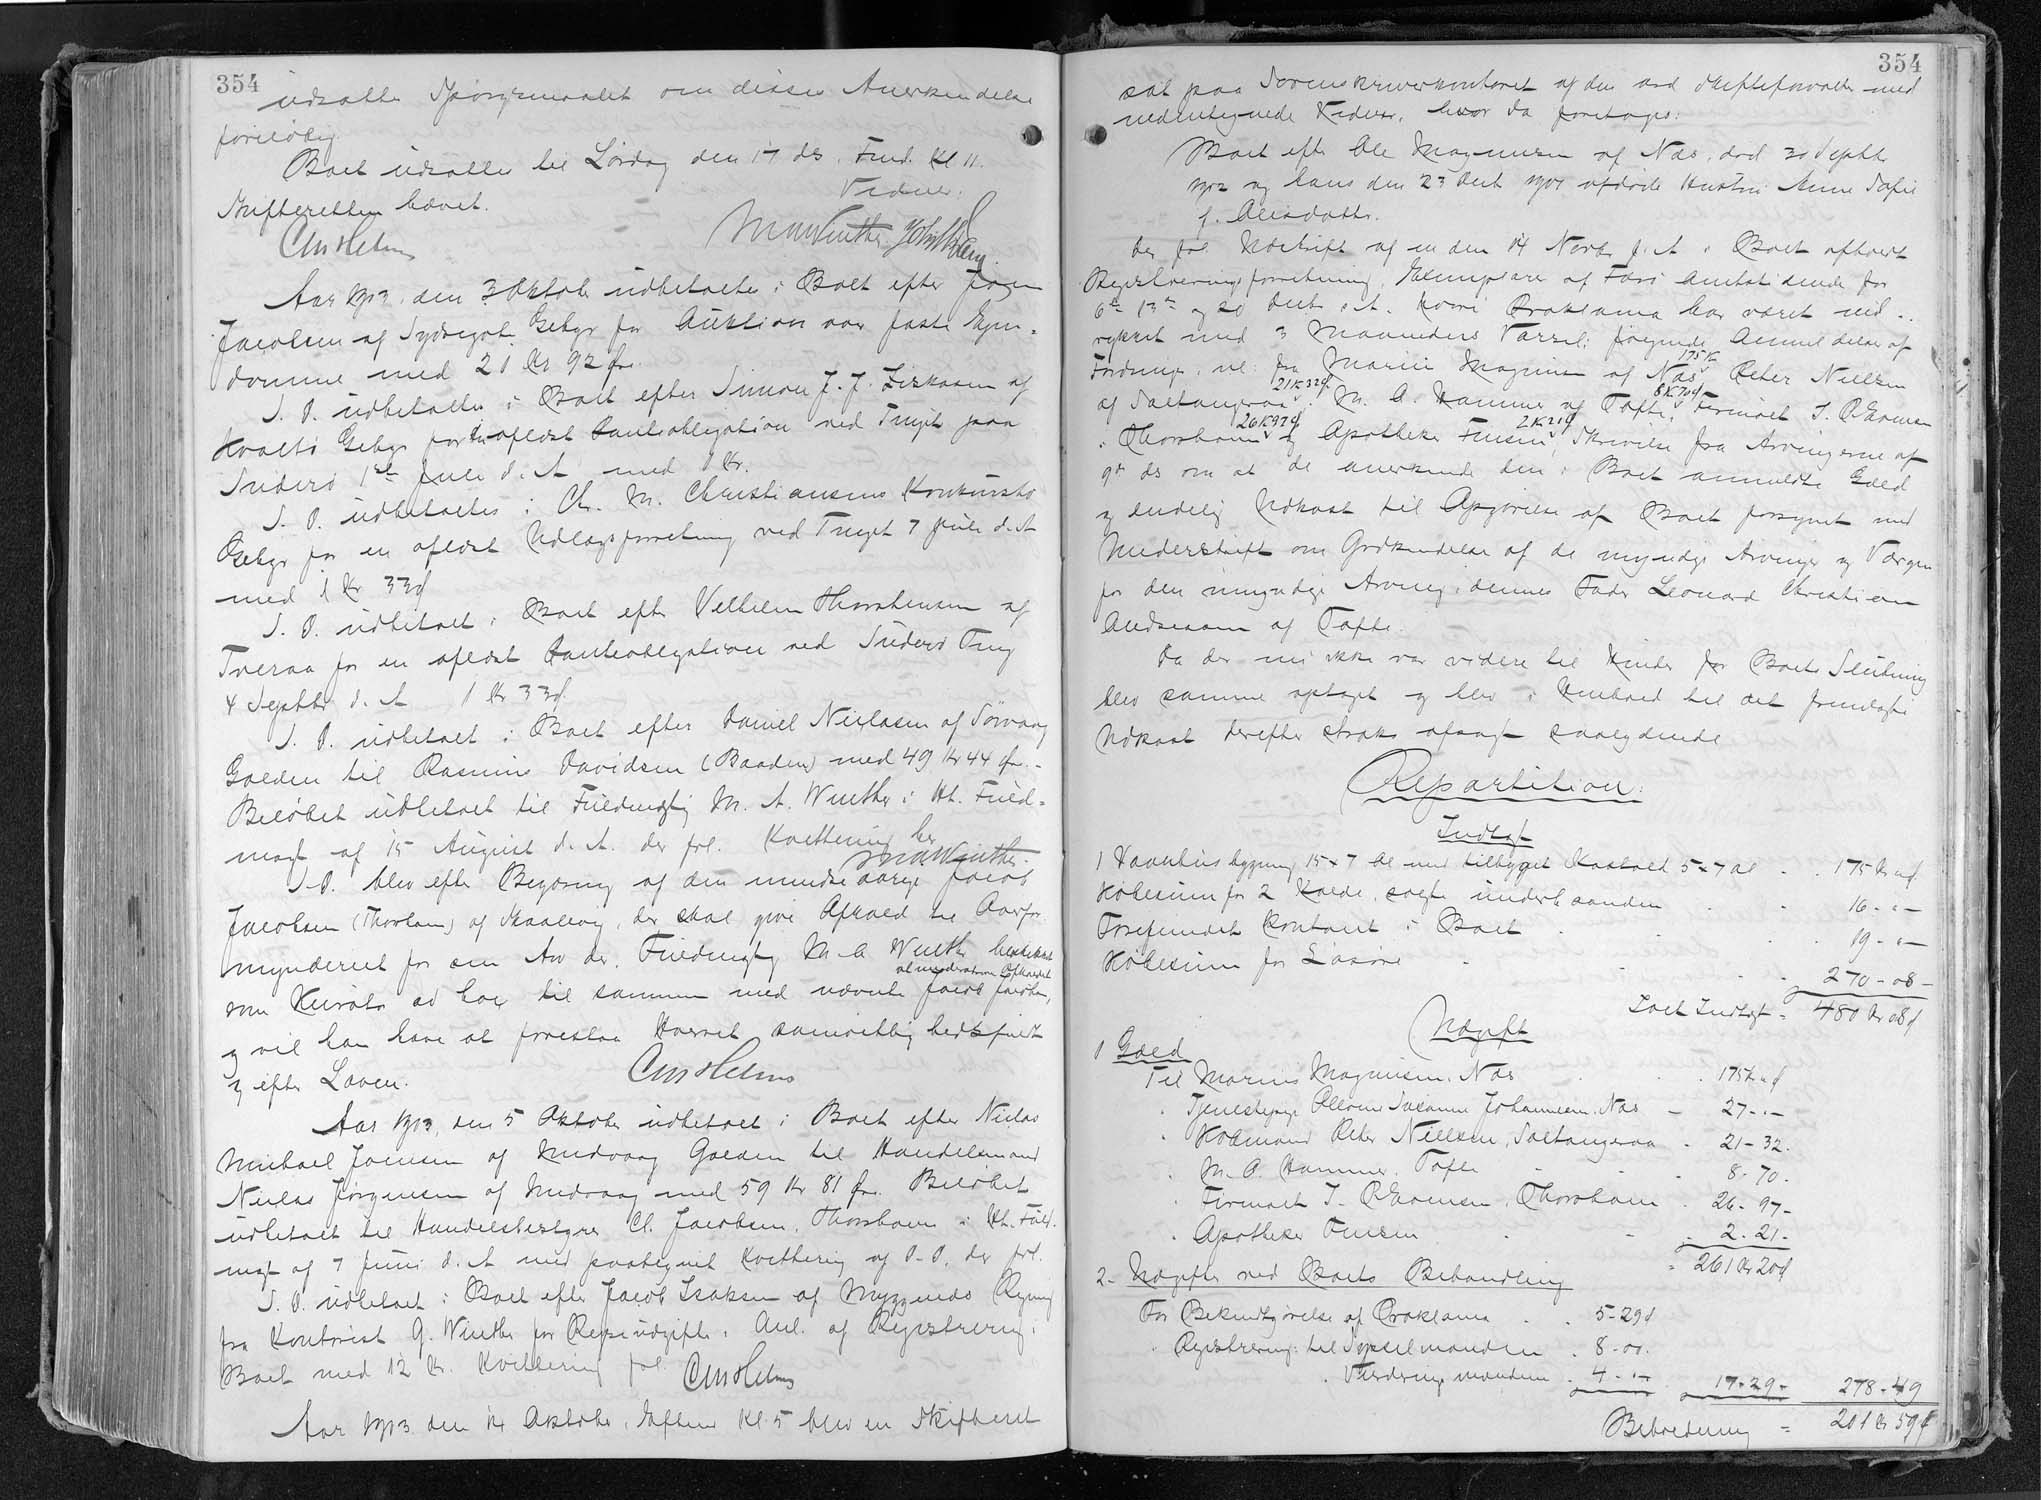 354
udsatte Spörgsmaalet om disses Anerkendelse
foreløbig.
Boet udsattes til Lørdag den 17 ds. Fmd. Kl 11.
Skifteretten hævet.
Vidner:
CMHelms
MAWinther
Aar 1903, den 3 Oktober udbetaltes i Boet efter
Jacobsen af Gebyr for Auktion over faste Ejen-
domme med 21 Kr 92 Øre.
S. D. udbetaltes i Boet efter Simon J. J. af
Kvalbø Gebyr for en aflæst Panteobligation ved Tinget paa
Suderø 1st Juli d. A. med 1 Kr.
S. D. udbetaltes i Ch. M. Christiansens Konkursbo
Gebyr for en aflæst Udlægsforretning ved Tinget 7 Juli d. A
med 1 Kr 33 Ø
S. D. udbetalt i Boet efter Vilhelm Thorsteinsen af
Tveraa for en aflæst Panteobligation ved Suderø Ting
4 Septbr d. A 1 Kr 33 Ø.
S. D. udbetalt i Boet efter Daniel Niclasen af Sørvaag
Gælden til Rasmus Davidsen (Baaden) med 49 Kr 44 Øre.-
Beløbet udbetalt til Fuldmægtig M. A. Winther i Ht. Fuld-
magt af 15 August d. A. der frl. Kvittering her
MAWinther.
S. D. blev efter Begæring af den mindreaarige Jacob
Jacobsen (Thorhavn) af Skaalevig, der skal give Afkald til Overfor-
mynderiet for sin Arv der, Fuldmægtig M. A. Winther beskikket
som Kurator ad hoc til sammen med nævnte Jacob Jacobsen,
at underskrive Afkaldet
og vil han have at forestaa Hvervet samvittighedsfuldt
og efter Loven.
CMHelms
Aar 1903, den 5 Oktober udbetalt i Boet efter Niclas
Michael Joensen af Midvaag Gælden til Handelsmand
Niclas Jørgensen af Midvaag med 59 Kr 81 Øre. Beløbet
udbetalt til Handelsbestyrer Cl. Jacobsen, Thorshavn i Ht. Fuld-
magt af 7 Juni d. A med paategnet Kvittering af D. D. der frl.
S. D. udbetalt i Boet efter Jacob Isaksen af Myggenæs Regning
fra Kontorist G. Winther for Rejseudgifter i Anl. af Registrering i
Boet med 12 Kr. Kvittering frl.
CMHelms
Aar 1903 den 14 Oktober, Aften Kl. 5 blev en Skifteret
354
sat paa Sorenskriverkontoret af den ord Skifteforvalter med
nedentegnede Vidner, hvor da foretoges:
Boet efter Ole Magnussen af Næs, død 30 Septbr
1902 og hans den 23 Decb 1901 afdøde Hustru Anne Sofie
f. Olesdatter.
Der frl. Udskrift af en den 14 Novbr f. A i Boet afholdt
Registreringsforretning, Exemplarer af Færø Amtstidende for
6te 13de og 20 Decb s. A. hvori Proklama har været ind-
rykket med 3 Maaneders Varsel; følgende Anmeldelser af
Fordringer, nl: fra Marius Magnussen af Næs 175 Kr, Peter Nielsen
af Saltangeraa 21 Kr 32 Ø, M. A. Hammer af Tofte 8 Kr 70 Ø, Firmaet I. P. Eliassen
i Thorshavn 26 Kr 97 Ø og Apotheker Finsen 2 Kr 21 Ø, Skrivelse fra Arvingerne af
9de ds om at de anerkende den i Boet anmeldte Gæld
og endelig Udkast til Opgørelse af Boet forsynet med
Underskrift om Godkendelse af de myndige Arvinger og Værgen
for den umyndige Arving, dennes Fader Leonard Christian
Andreasen af Tofte.
Da der nu ikke var videre til Hinder for Boets Slutning
blev samme optaget og blev i Henhold til det fremlagte
Udkast derefter straks afsagt saalydende
Repartition:
Indtægt
1 Vaaningsbygning 15 x 7 Al med tilbygget 5 x 7 Al . . 175 Kr " Ø
Købesum for 2 , solgte underhaanden . . 16 - " -
Forefundet Kontant i Boet . . . 19 - " -
Købesum for Løsøre . . . 270 - 08 -
Ialt Indtægt - 480 Kr 08 Ø
Udgift
1 Gæld
Til Marius Magnussen, Næs . . 175 Kr " Ø
" Tjenestepige Susanne Johannesen, Næs - 27 - " -
" Købmand Peter Nielsen, Saltangeraa - 21 - 32.
" M. A. Hammer, Tofte - - 8 - 70.
" Firmaet I. P. Eliassen, Thorshavn . 26 - 97 -
" Apotheker Finsen . - . 2 - 21 -
- 261 Kr 20 Ø
2 - Udgifter ved Boets Behandling
For Bekendtgørelse af Proklama . . 5 - 29 Ø
" Registrering: til Sysselmanden . 8 - 00.
" Vurderingsmændene . 4 - " - 17 - 29 - 278 - 49
Beholdning = 201 Kr 59 Ø